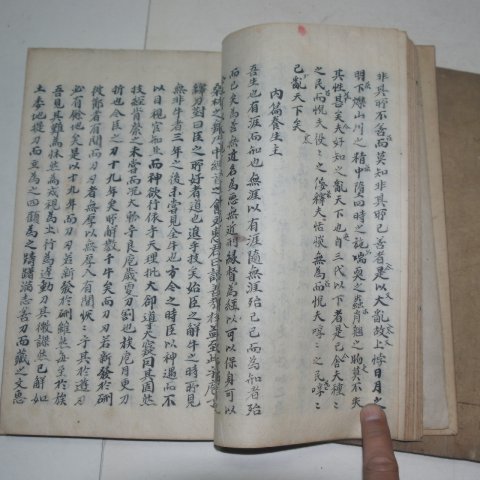 非其所不善而莫知非其所已善者是以大亂故上悖日月之
明下爍山川之精中墮四時之施喘耎之蟲肖翹之物莫不失
其性甚矣夫好知之亂天下也自三代以下者是已舍夫種〻
之民而悅夫役〻之佞釋夫恬惔無為而悅夫啍〻之啍〻
已亂天下矣
內篇養生主
吾生也有涯而知也無涯以有涯隨無涯殆已已而為知者殆
而已矣為善無近名為惡無近刑緣督為經以可以保身可以
桑林之舞乃中經首之會文惠君曰譆善哉技蓋至此乎庖丁
釋刀對曰臣之所好者道也進乎技矣始臣之解牛之時所見
無非牛者三年之後未嘗見全牛也方今之時臣以神遇而不
以目視官知止而神欲行依乎天理批大卻道大窾因其固然
技經肯綮之未嘗而況大軱乎良庖歲更刀割也族庖月更刀
折也今臣之刀十九年矣所解數千牛矣而刀刃若新發於硎
彼節者有間而刀刃者無厚以無厚入有間恢〻乎其於遊刃
必有餘地矣是以十九年而刀刃若新發於硎雖然每至於族
吾見其難為怵然為戒視為止行為遲動刀甚微謋然已解如
土委地提刀而立為之四顧為之躊躇滿志善刀而藏之文惠